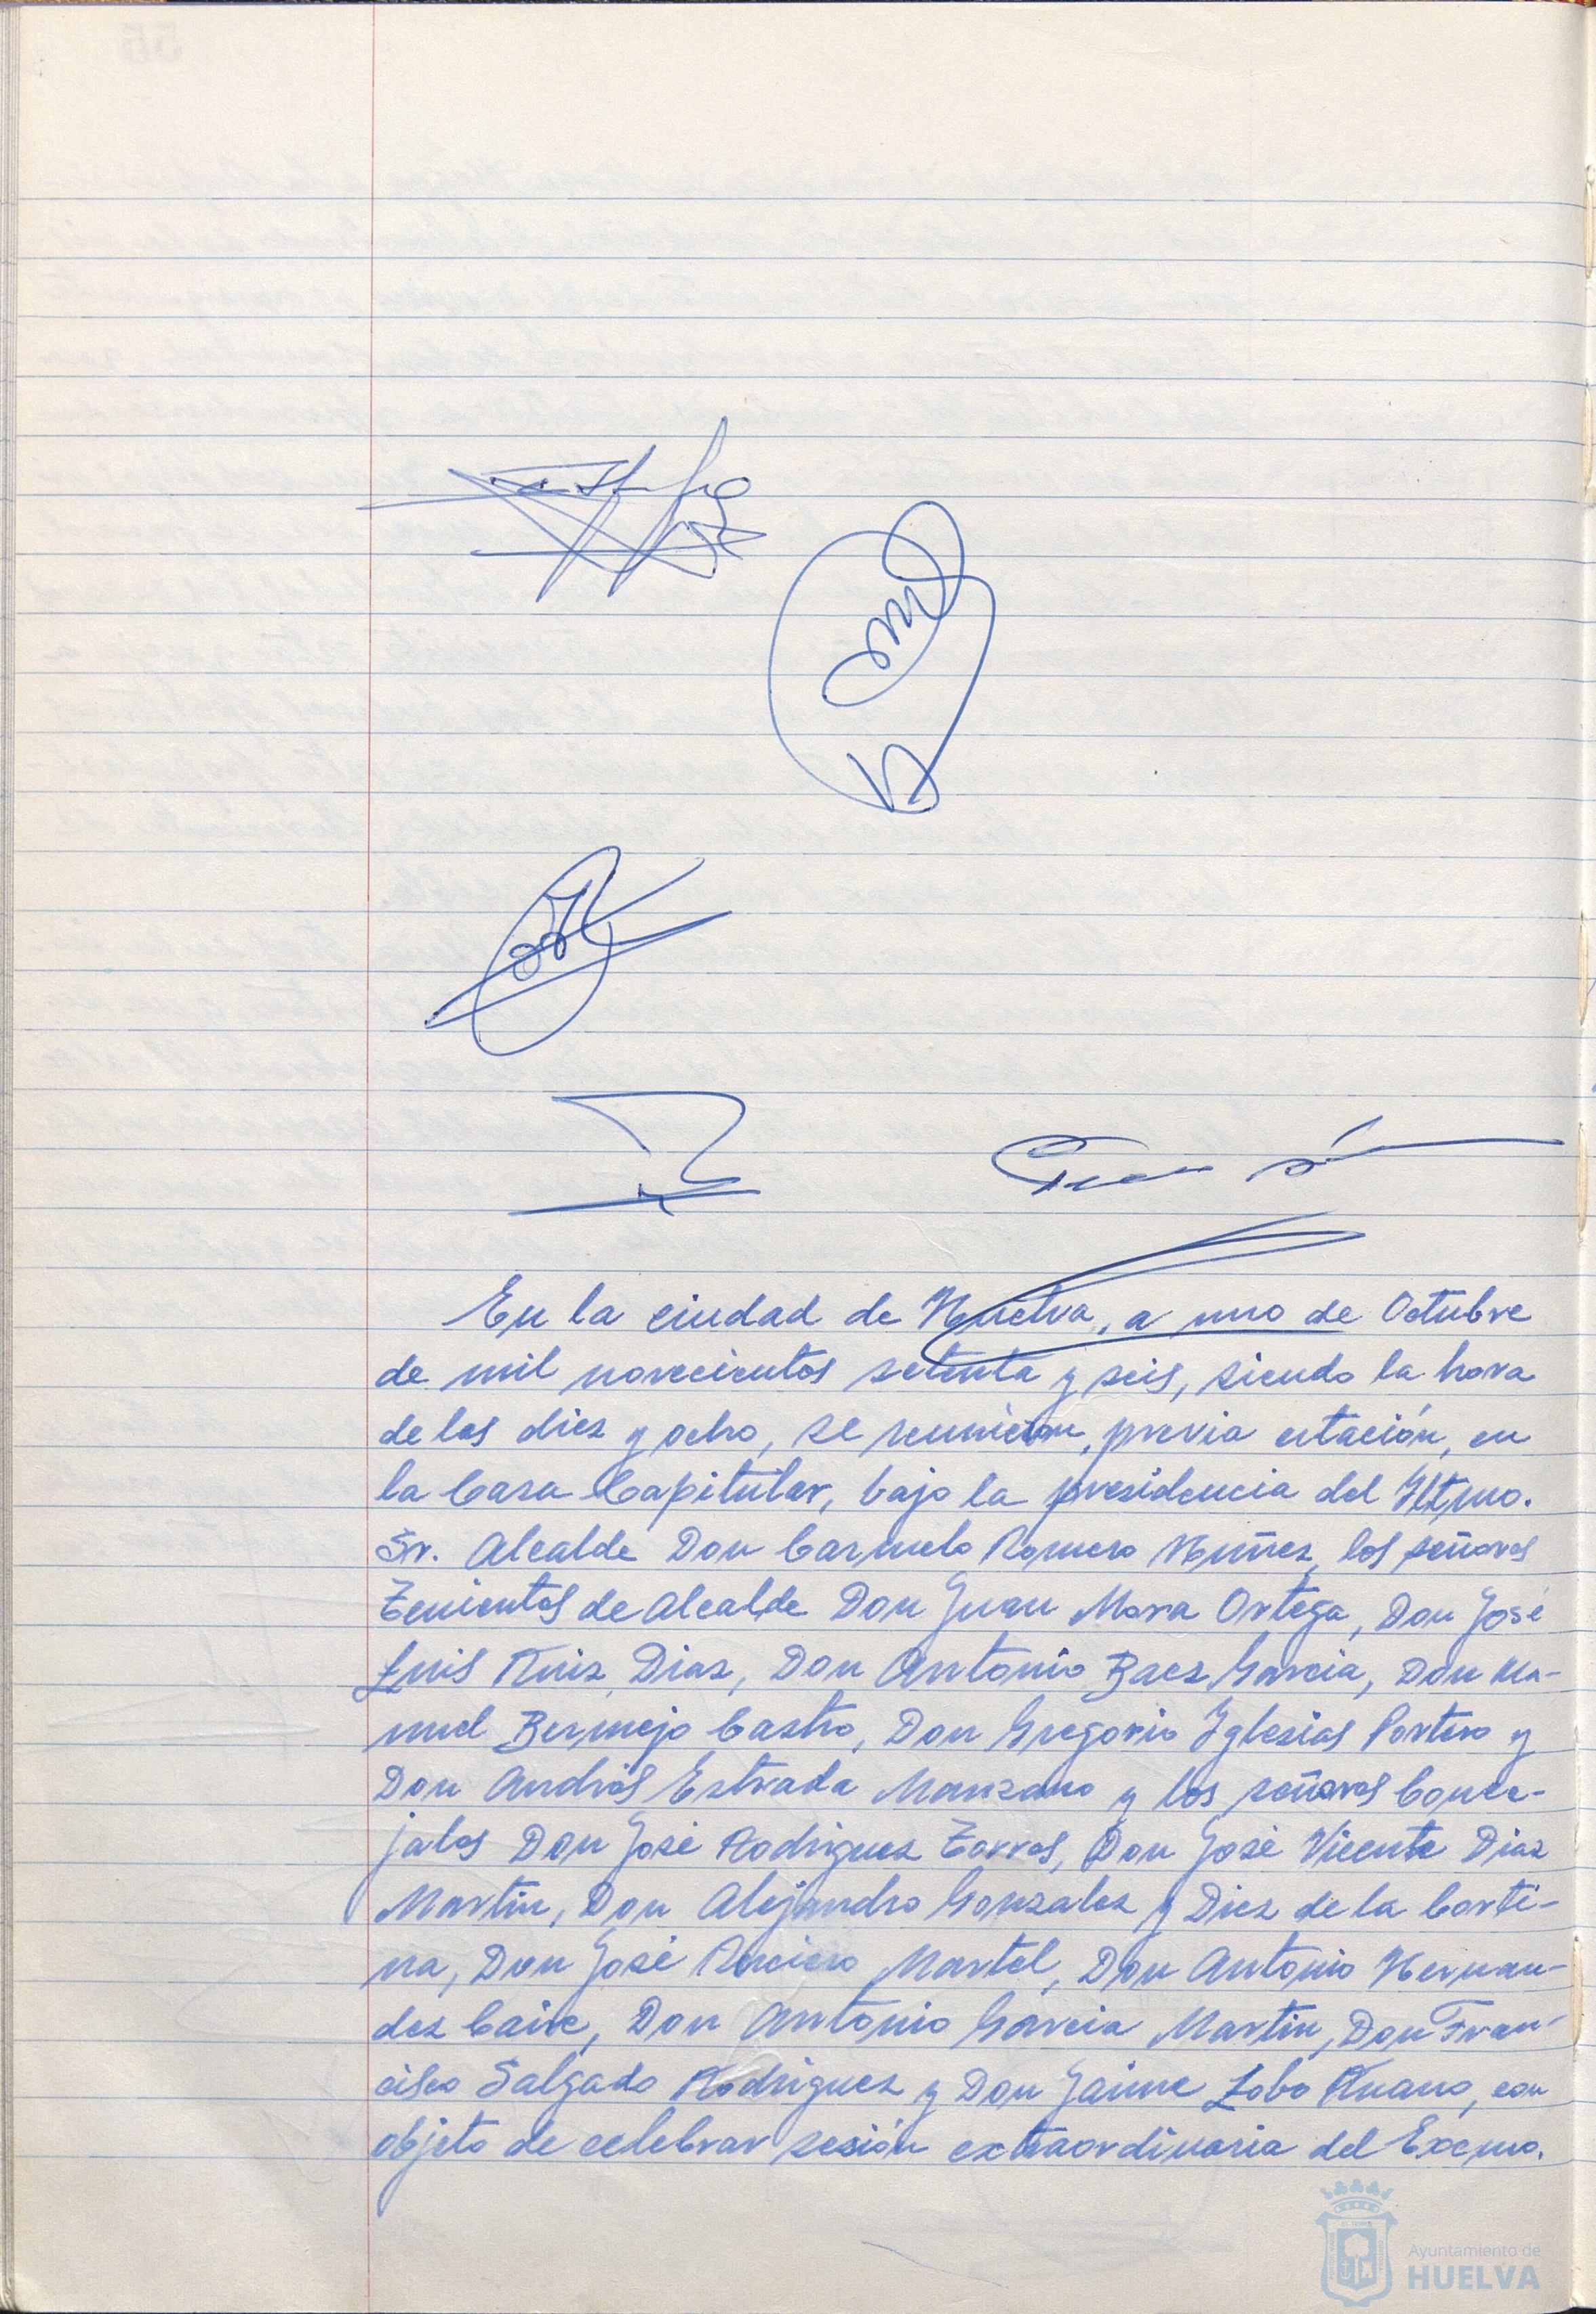 En la ciudad de Huelva, a uno de Octubre
de mil novecientos setenta y seis, siendo la hora
de las diez y ocho, se reunieron, previa citación, en
la Casa Capitular, bajo la presidencia del Iltmo.
Sr. Alcalde Don Carmelo Romero Nuñez, los señores
Tenientes de Alcalde Don Juan Mora Ortega, Don José
Luis Ruiz Diaz, Don Antonio Baez Garcia, Don Ma-
nuel Bermejo Castro, Don Gregorio Iglesias Portero y
Don Andrés Estrada Manzano y los señores Conce-
jales Don José Rodriguez Torres, Don José Vicente Diaz
Martin, Don Alejandro Gonzalez y Diez de la Corti-
na, Don José Martel, Don Antonio Hernan-
dez Don Antonio Garcia Martin, Don Fran-
cisco Salgado Rodriguez y Don Jaime Lobo Ruano, con
objeto de celebrar sesión extraordinaria del Excmo.
Ayuntamiento de
HUELVA